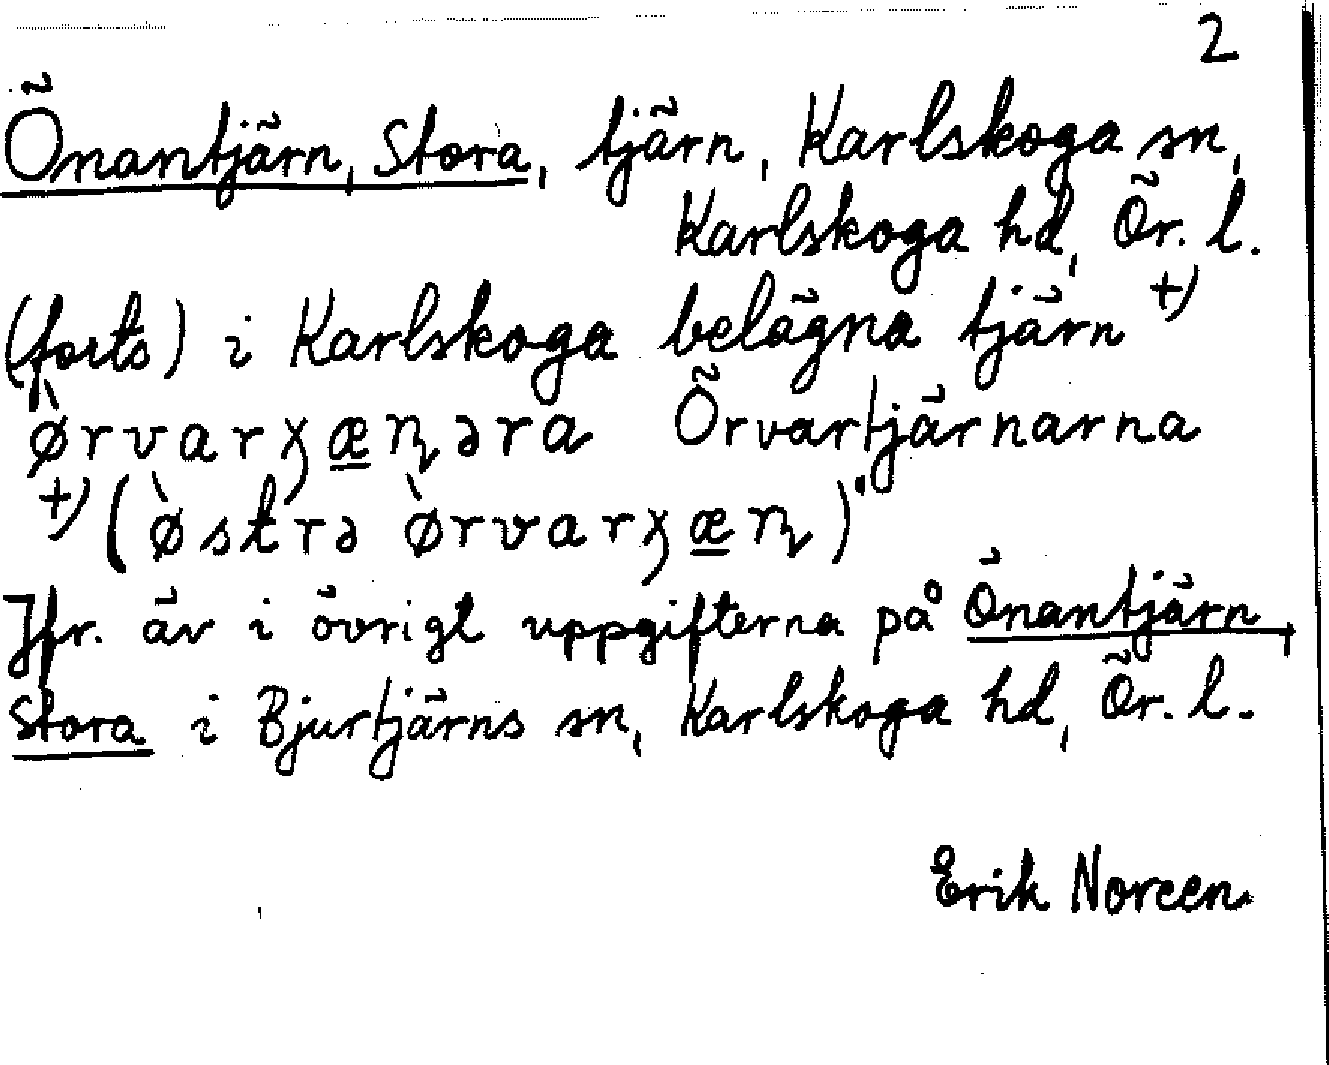 2
Önantjärn, Stora, tjärn, Karlskoga sn,
Karlskoga hd, Ör. l.
(forts) i Karlskoga belägna tjärn +)
ø̀rvarχæɳəra Örvartjärnarna
+) (ø̀strə ø̀rvarχæɳ)"
Jfr. äv i övrigt uppgifterna på Önantjärn,
Stora i Bjurtjärns sn, Karlskoga hd, Ör. l.
Erik Noreen